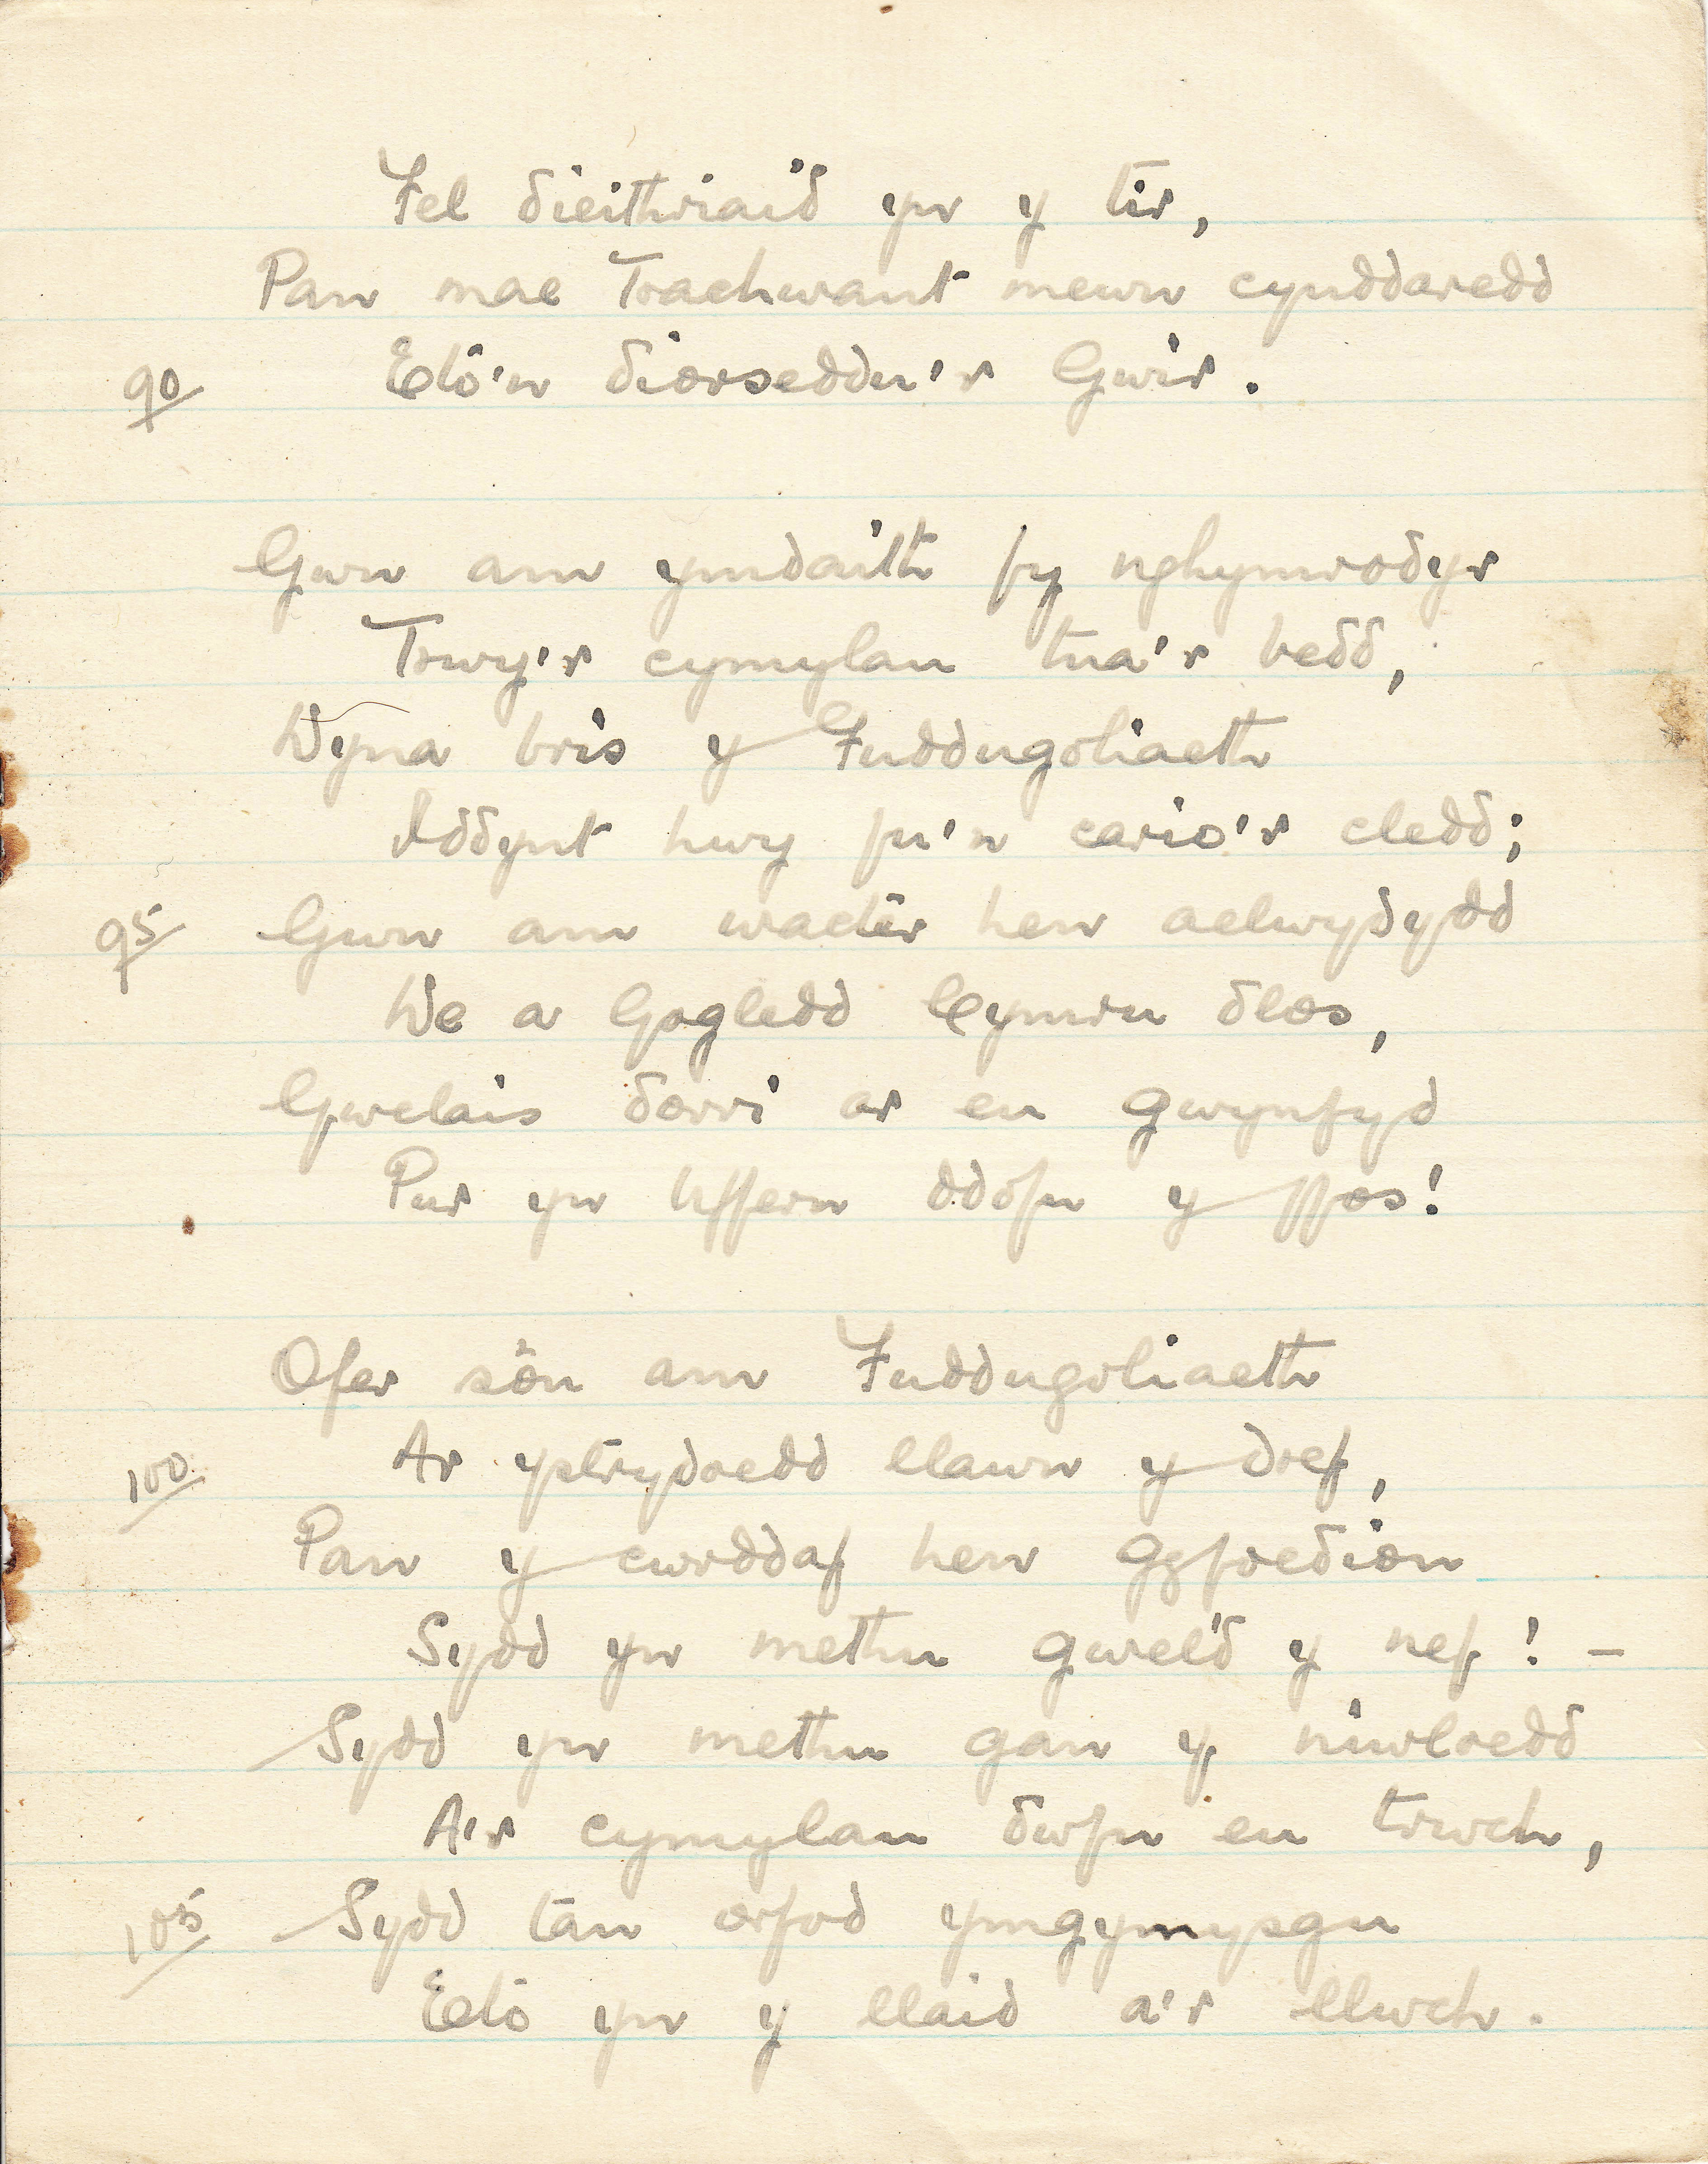 Fel dieithriaid yn y tir,
Pan mae Trachwant mewn cynddaredd
90 Eto'n diorseddu'r Gwir.
Gwn am ymdaith fy nghymrodyr
Trwy'r cymylau tua'r bedd,
Dyna bris y Fuddugoliaeth
Iddynt hwy fu'n cario'r cledd;
95 Gwn am wacter hen aelwydydd
De a Gogledd Cymru dlos,
Gwelais dorri ar eu gwynfyd
Pur yn Uffern ddofn y ffos!
Ofer sôn am Fuddugoliaeth
100 Ar ystrydoedd llawn y dref,
Pan y cwrddaf hen gyfoedion
Sydd yn methu gweld y nef! –
Sydd yn methu gan y niwloedd
A'r cymylau dwfn eu trwch,
105 Sydd tan orfod ymgymysgu
Eto yn y llaid a'r llwch.